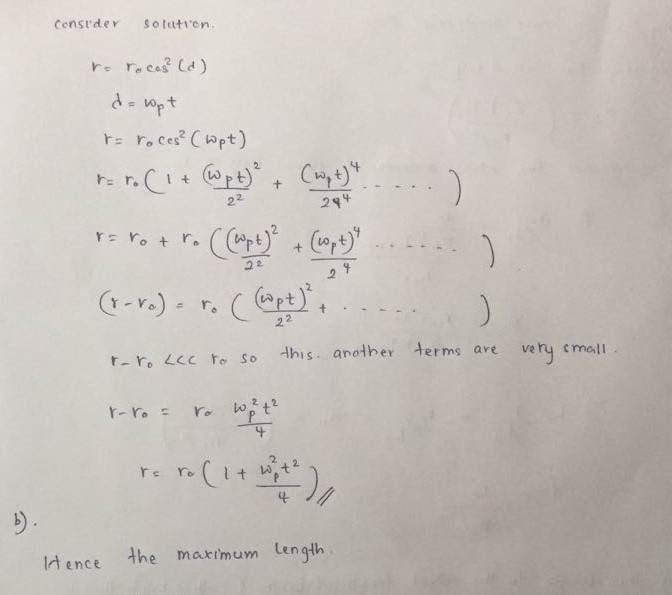 Consider solution.
r = r₀ cos² (d)
d = ωpt
r = r₀ cos² (ωpt)
r = r₀ (1 + (ωpt)²/2² + (ωpt)⁴/24⁴ ----- )
r = r₀ + r₀ ((ωpt)²/2² + (ωpt)⁴/2⁴ ------ )
(r-r₀) = r₀ ((ωpt)²/2² + ----- )
r-r₀ <<< r₀ so this. another terms are very small.
r-r₀ = r₀ ωp²t²/4
r = r₀ (1 + ωp²t²/4)//
b).
Hence the maximum length.